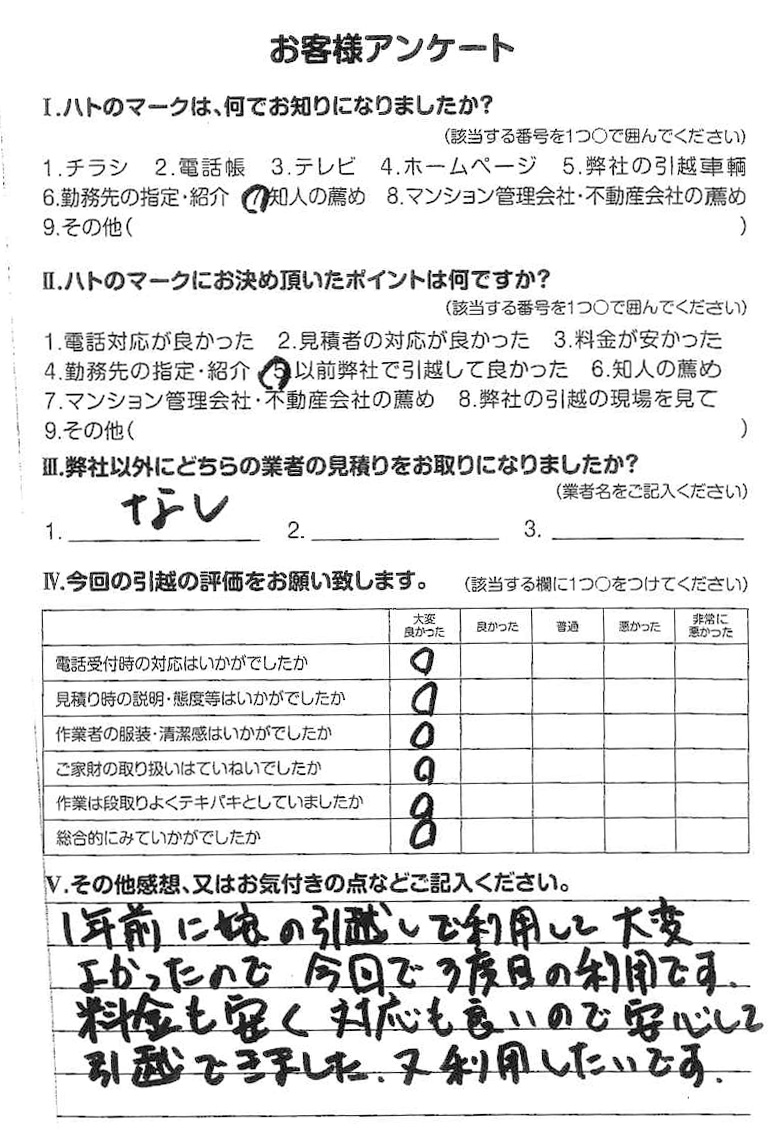 お客様アンケート
Ⅰ.ハトのマークは、何でお知りになりましたか?
(該当する番号を1つ○で囲んでください)
1.チラシ 2.電話帳 3.テレビ 4.ホームページ 5.弊社の引越車輌
6.勤務先の指定・紹介 7.知人の薦め 8.マンション管理会社・不動産会社の薦め
9.その他( )
Ⅱ.ハトのマークにお決め頂いたポイントは何ですか?
(該当する番号を1つ○で囲んでください)
1.電話対応が良かった 2.見積者の対応が良かった 3.料金が安かった
4.勤務先の指定・紹介 5.以前弊社で引越して良かった 6.知人の薦め
7.マンション管理会社・不動産会社の薦め 8.弊社の引越の現場を見て
9.その他( )
Ⅲ.弊社以外にどちらの業者の見積りをお取りになりましたか?
(業者名をご記入ください)
1. なし 2. 3.
Ⅳ.今回の引越の評価をお願い致します。 (該当する欄に1つ○をつけてください)
大変良かった 良かった 普通 悪かった 非常に悪かった
電話受付時の対応はいかがでしたか ○
見積り時の説明・態度等はいかがでしたか ○
作業者の服装・清潔感はいかがでしたか ○
ご家財の取り扱いはていねいでしたか ○
作業は段取りよくテキパキとしていましたか ○
総合的にみていかがでしたか ○
Ⅴ.その他感想、又はお気付きの点などご記入ください。
1年前に娘の引越しで利用して大変
よかったので今回で3度目の利用です.
料金も安く対応も良いので安心して
引越できました.又利用したいです.